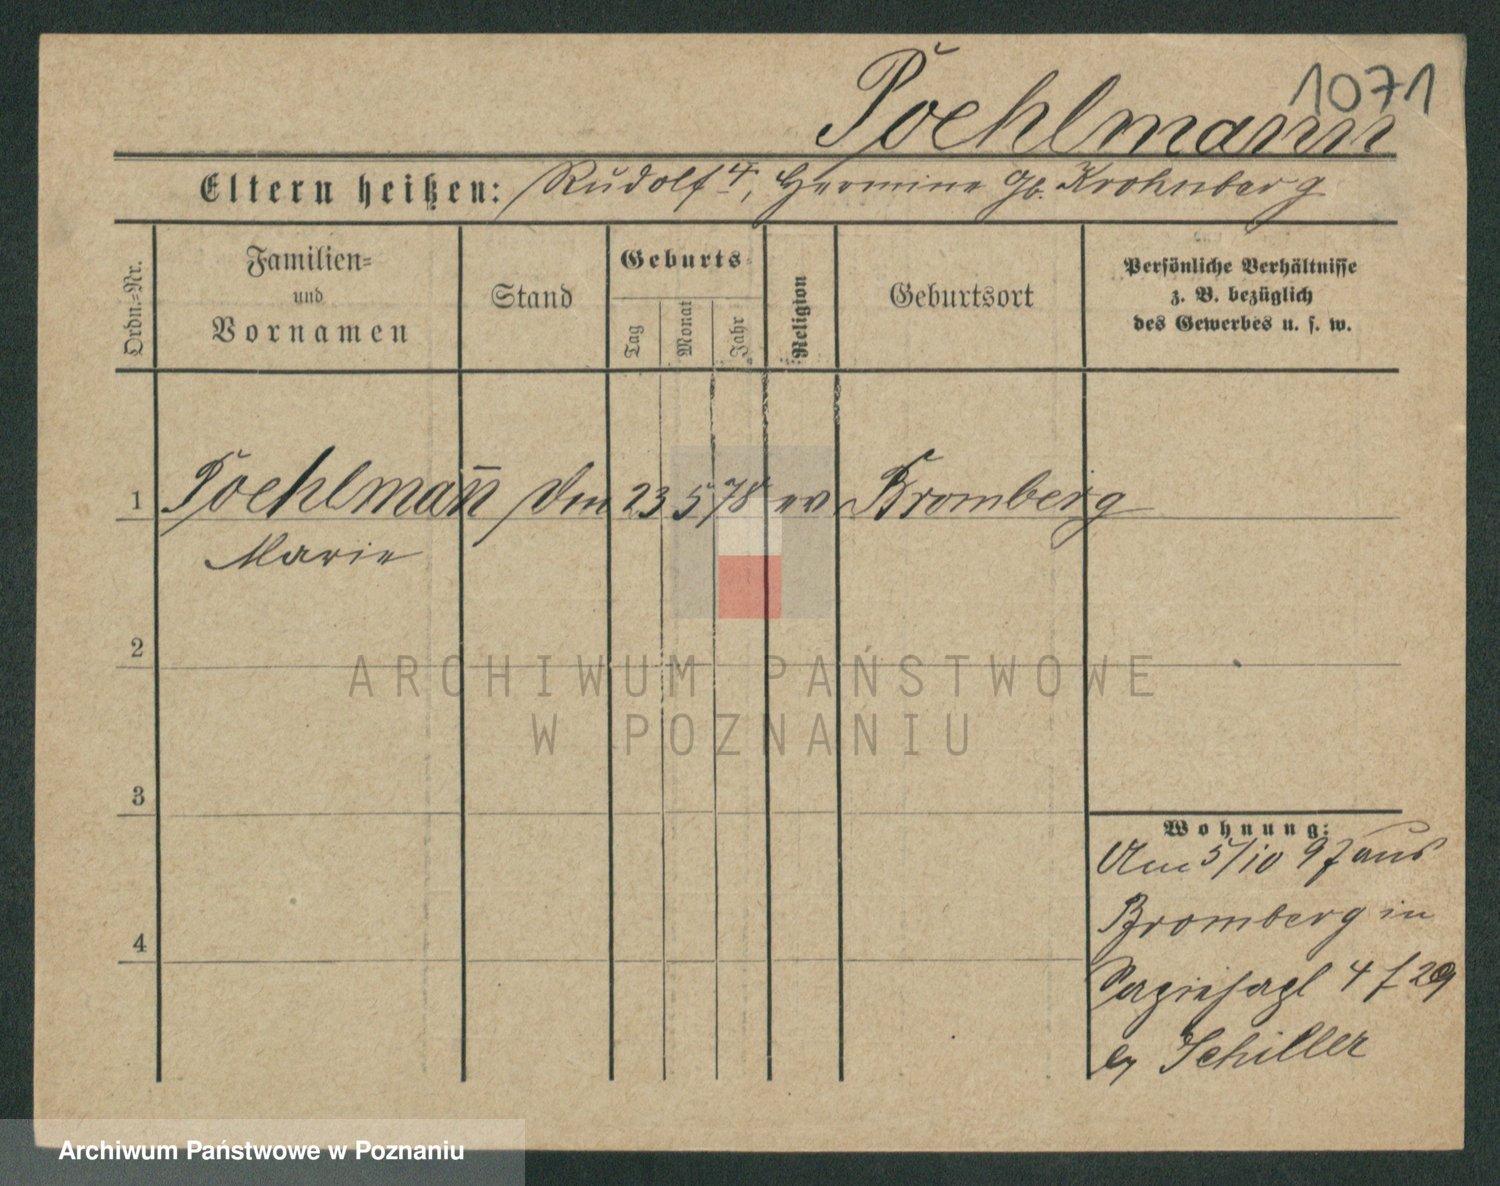 1071
Poehlmann
Eltern heißen: Rudolf †, Hermine gb. Krohnberg
Ordn.-Nr.
Familien-
und
Vornamen
Stand
Geburts-
Tag
Monat
Jahr
Religion
Geburtsort
Persönliche Verhältnisse
z. B. bezüglich
des Gewerbes u. s. w.
1 Poehlman̅n 23 5 78 ev Bromberg
Marie
2
ARCHIWUM PAŃSTWOWE
W POZNANIU
3
Wohnung:
Am 5/10 97 aus
Bromberg in
4
4
Schiller
Archiwum Państwowe w Poznaniu